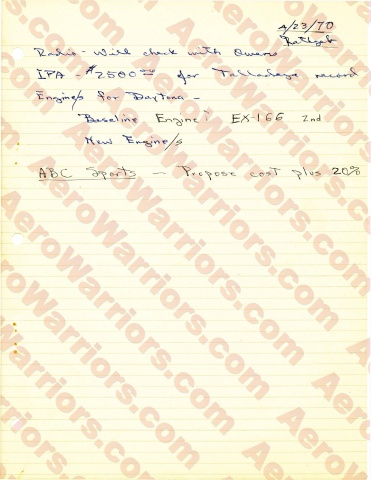 4/23/70
Radio - Will check with Owens
IPA - $2500 00 for Talladega record
Engine/s for Daytona -
Baseline Engine: EX-166 2nd
New Engine/s
ABC Sports - Propose cost plus 20%
AeroWarriors.com